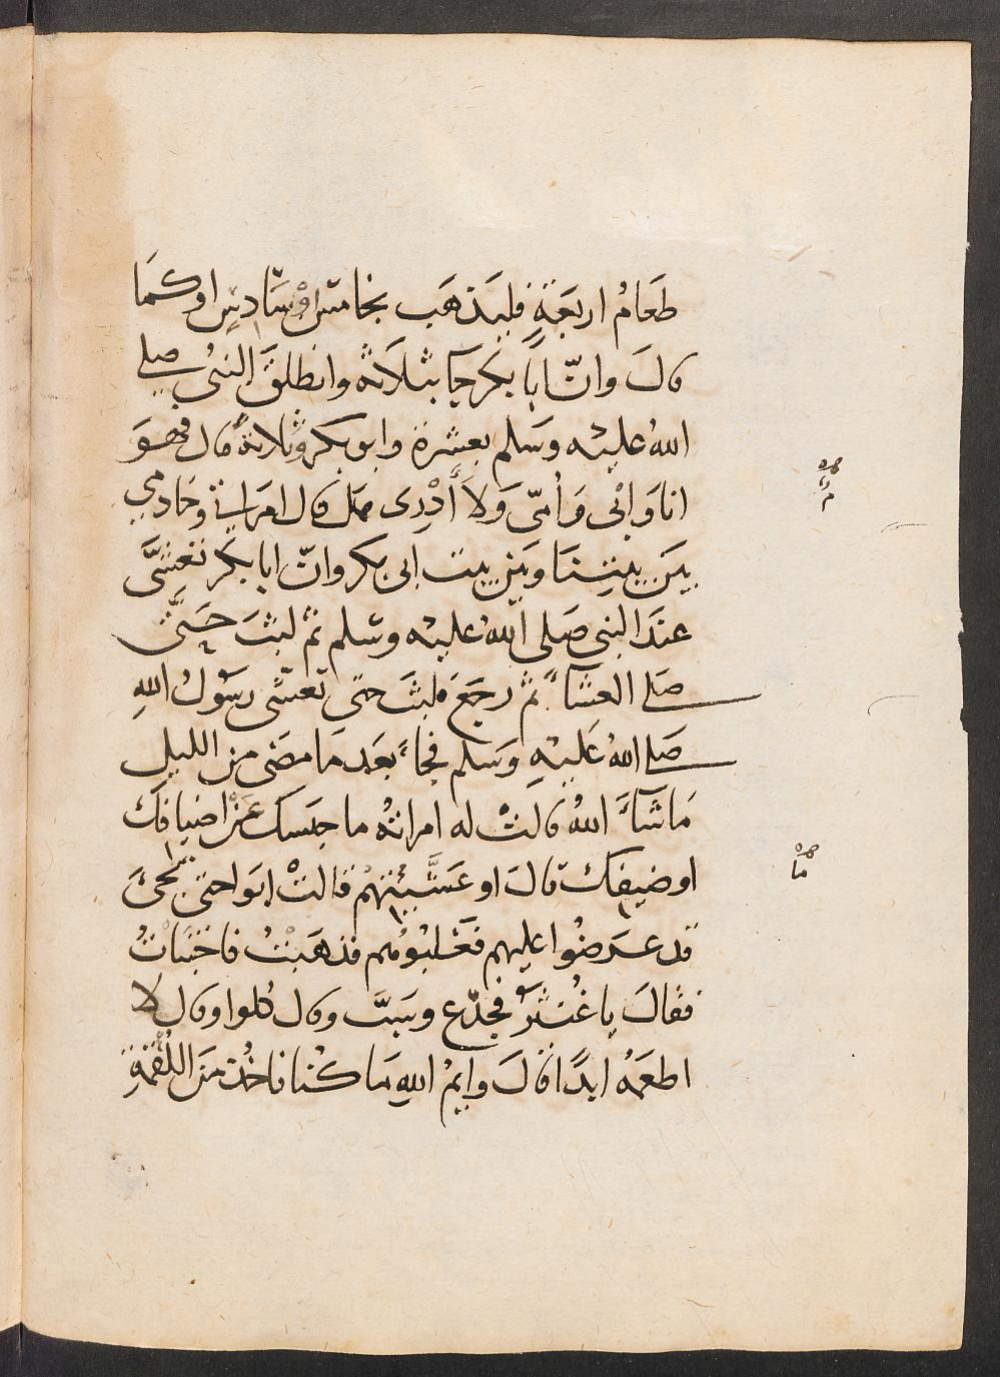 طَعَامُ اربَعَةٍ فليَذهَب بخامسٍ اوْ سَادسٍ اوكمَا
قالَ وانّ ابا بكرٍ جآ بثلاثةٍ وانطلقَ النبيُ صلى
اللهُ عليه وسَلم بعشرة وابو بكر وثلاثةً قال فهوَ
انا وَابى وَاُمّى وَلا أَدْرِى هل قال امراتي وخادمي
بين بيتِنَا وبَين بيت ابى بكر وانّ ابا بكر تعشَّى
عندَ النبى صَلى اللهُ عليه وسَلم ثم لبثَ حَتى
صَلى العشآءَ ثم رجَعَ فلبثَ حتى تعشى رسولُ اللهِ
صَلى اللهُ عَليْهِ وَسَلم فجاءَ بعَد مَا مضى من الليل
مَا شآءَ اللهُ قالتْ له امراتُه ما حبَسَك عَنْ اضيافكَ
او ضيفك قالَ او عَشَّيْتِهمْ قالتْ ابَوا حتى تجىَ
قد عرَضُوا عليهم فَغَلبُوهُم فذهَبْتُ فاختَبَاتُ
فقالَ يا غُنْثَرُ فجدّع وسَبَّ وقال كُلوا وقال لا
اطعَمُه ابدًا قالَ وايمُ اللهِ مَا كُنا ناخُذ منَ اللُقمَةِ